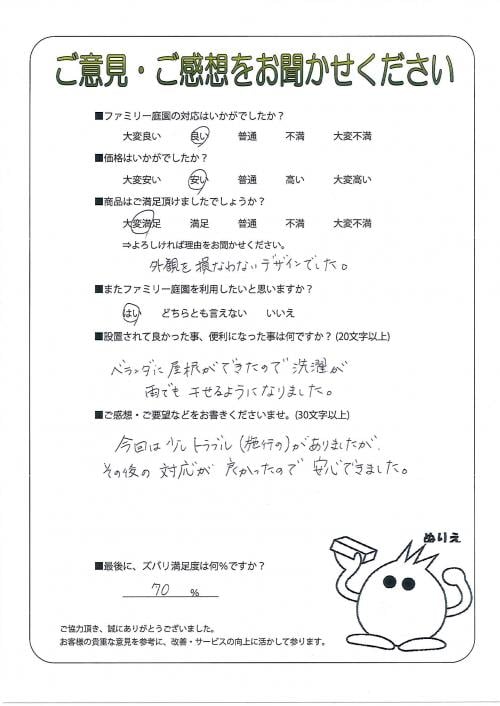 ご意見・ご感想をお聞かせください
■ファミリー庭園の対応はいかがでしたか？
大変良い 良い 普通 不満 大変不満
■価格はいかがでしたか？
大変安い 安い 普通 高い 大変高い
■商品はご満足頂けましたでしょうか？
大変満足 満足 普通 不満 大変不満
⇒よろしければ理由をお聞かせください。
外観を損なわないデザインでした。
■またファミリー庭園を利用したいと思いますか？
はい どちらとも言えない いいえ
■設置されて良かった事、便利になった事は何ですか？(20文字以上)
ベランダに屋根ができたので洗濯が
雨でも干せるようになりました。
■ご感想・ご要望などをお書きくださいませ。(30文字以上)
今回は少しトラブル(施行の)がありましたが、
その後の対応が良かったので安心できました。
ぬりえ
■最後に、ズバリ満足度は何％ですか？
70 %
ご協力頂き、誠にありがとうございました。
お客様の貴重な意見を参考に、改善・サービスの向上に活かして参ります。